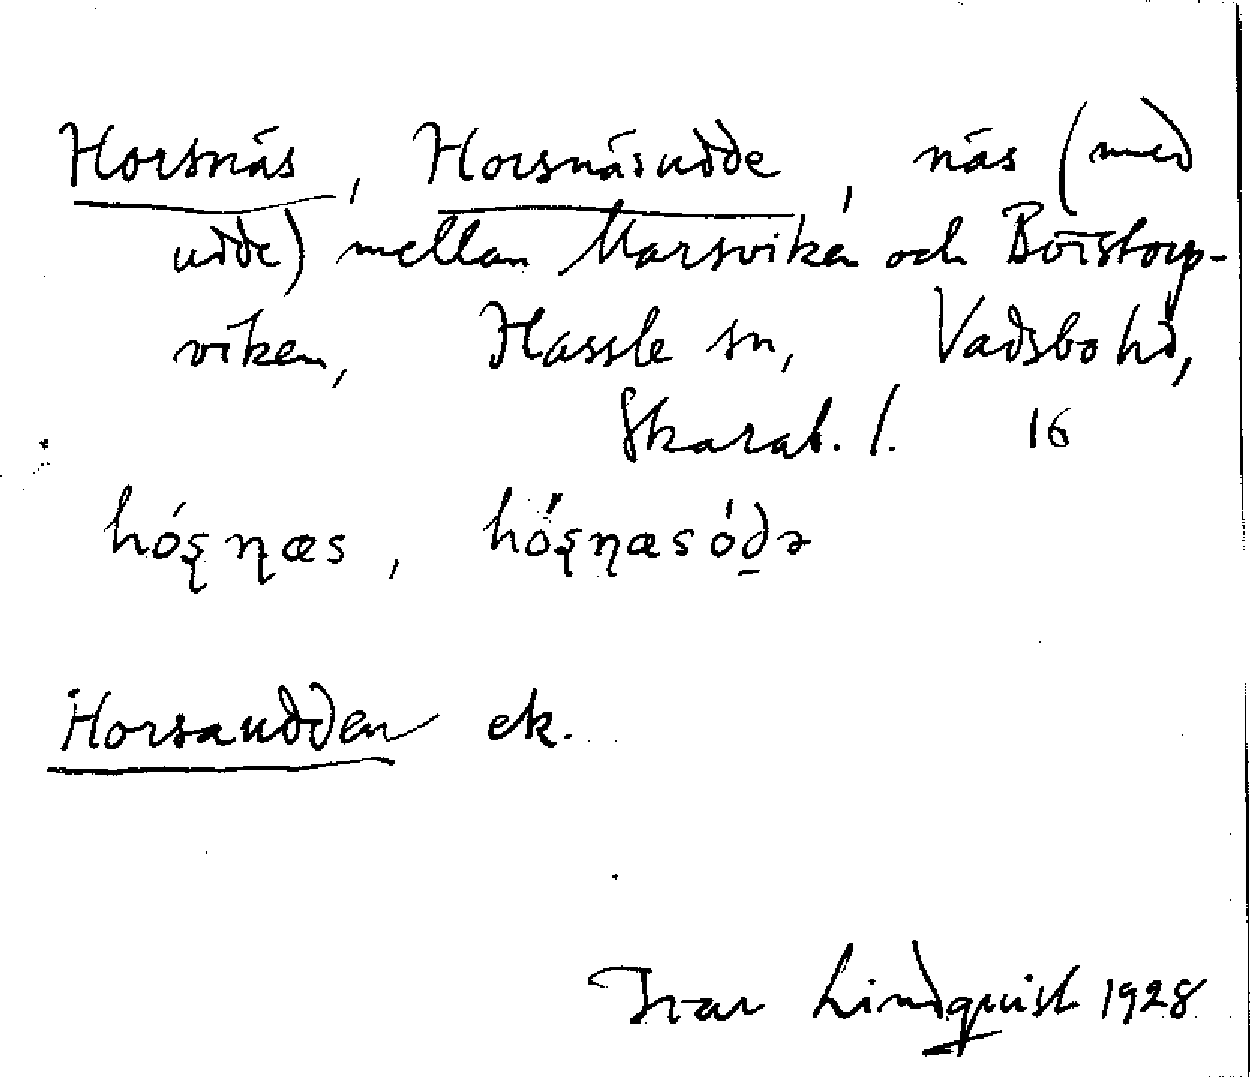 Horsnäs, Horsnäsudde, näs (med
udde) mellan Marsviken och Börstorp-
viken, Hassle sn, Vadsbo hd,
Skarab. l. 16
hó̜ꞩɳæs, hó̜ꞩɳæsód̠ə
Horsaudden ek.
Ivar Lindquist 1928